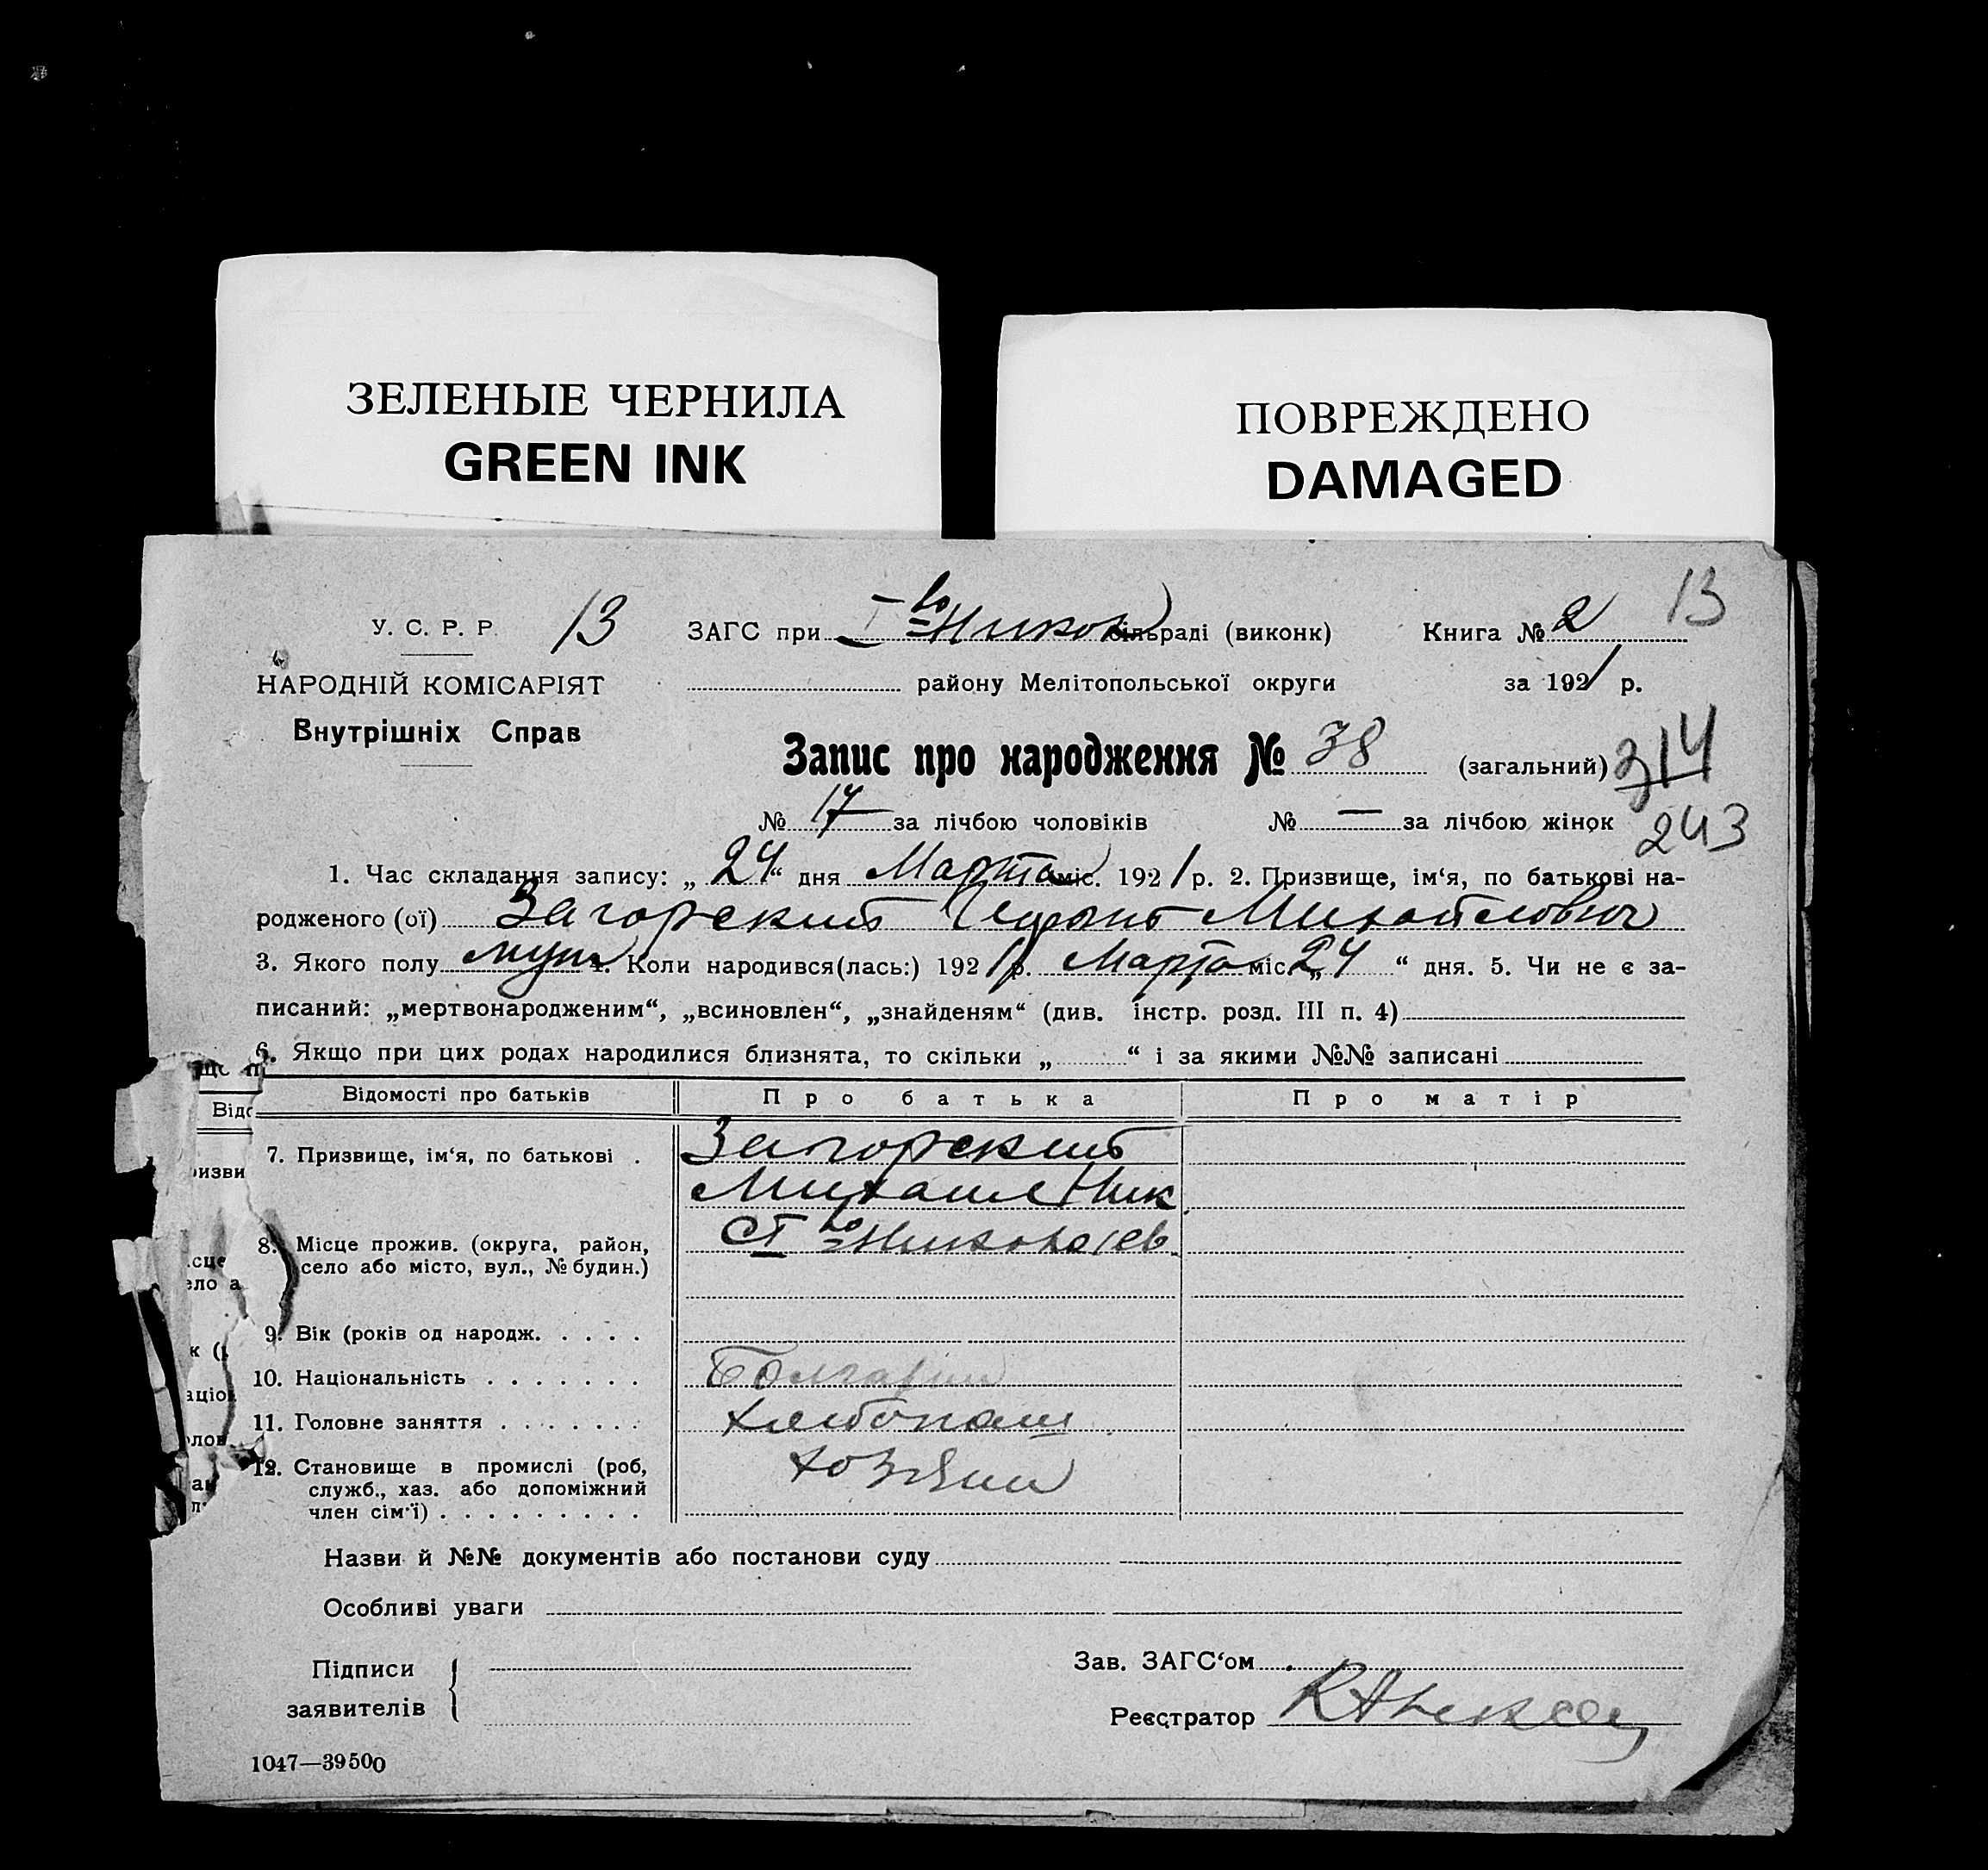 ЗЕЛЕНЫЕ ЧЕРНИЛА
GREEN INK
ПОВРЕЖДЕНО
DAMAGED
У. С. Р. Р. 13 ЗАГС при Никол сільраді (виконк) Книга № 2 13
НАРОДНІЙ КОМІСАРІЯТ району Мелітопольської округи за 1921 р.
Внутрішніх Справ
Запис про народження № 38 (загальний) 314
№ 17 за лічбою чоловіків № — за лічбою жінок 243
1. Час складання запису: „24“ дня Марта міс. 1921 р. 2. Призвище, ім‘я, по батькові на-
родженого (ої) Загорский Михайлович
3. Якого полу муж 4. Коли народився(лась:) 1921 р. Марта міс. „24“ дня. 5. Чи не є за-
писаний: „мертвонародженим“, „всиновлен“, „знайденям“ (див. інстр. розд. III п. 4)
6. Якщо при цих родах народилися близнята, то скільки „ “ і за якими №№ записані
Відомості про батьків Про батька Про матір
7. Призвище, ім‘я, по батькові . Загорский
Михаил Ник
8. Місце прожив. (округа, район, село або місто, вул., № будин.) Ст Николаев
9. Вік (років од народж. . . . .
10. Національність . . . . . . . Болгарин
11. Головне заняття . . . . . . . Хлебопаш
12. Становище в промислі (роб, Хозяин
служб., хаз. або допоміжний
член сім‘ї) . . . . . . . . .
Назви й №№ документів або постанови суду
Особливі уваги
Підписи
заявителів
Зав. ЗАГС‘ом
Реєстратор
1047—39500